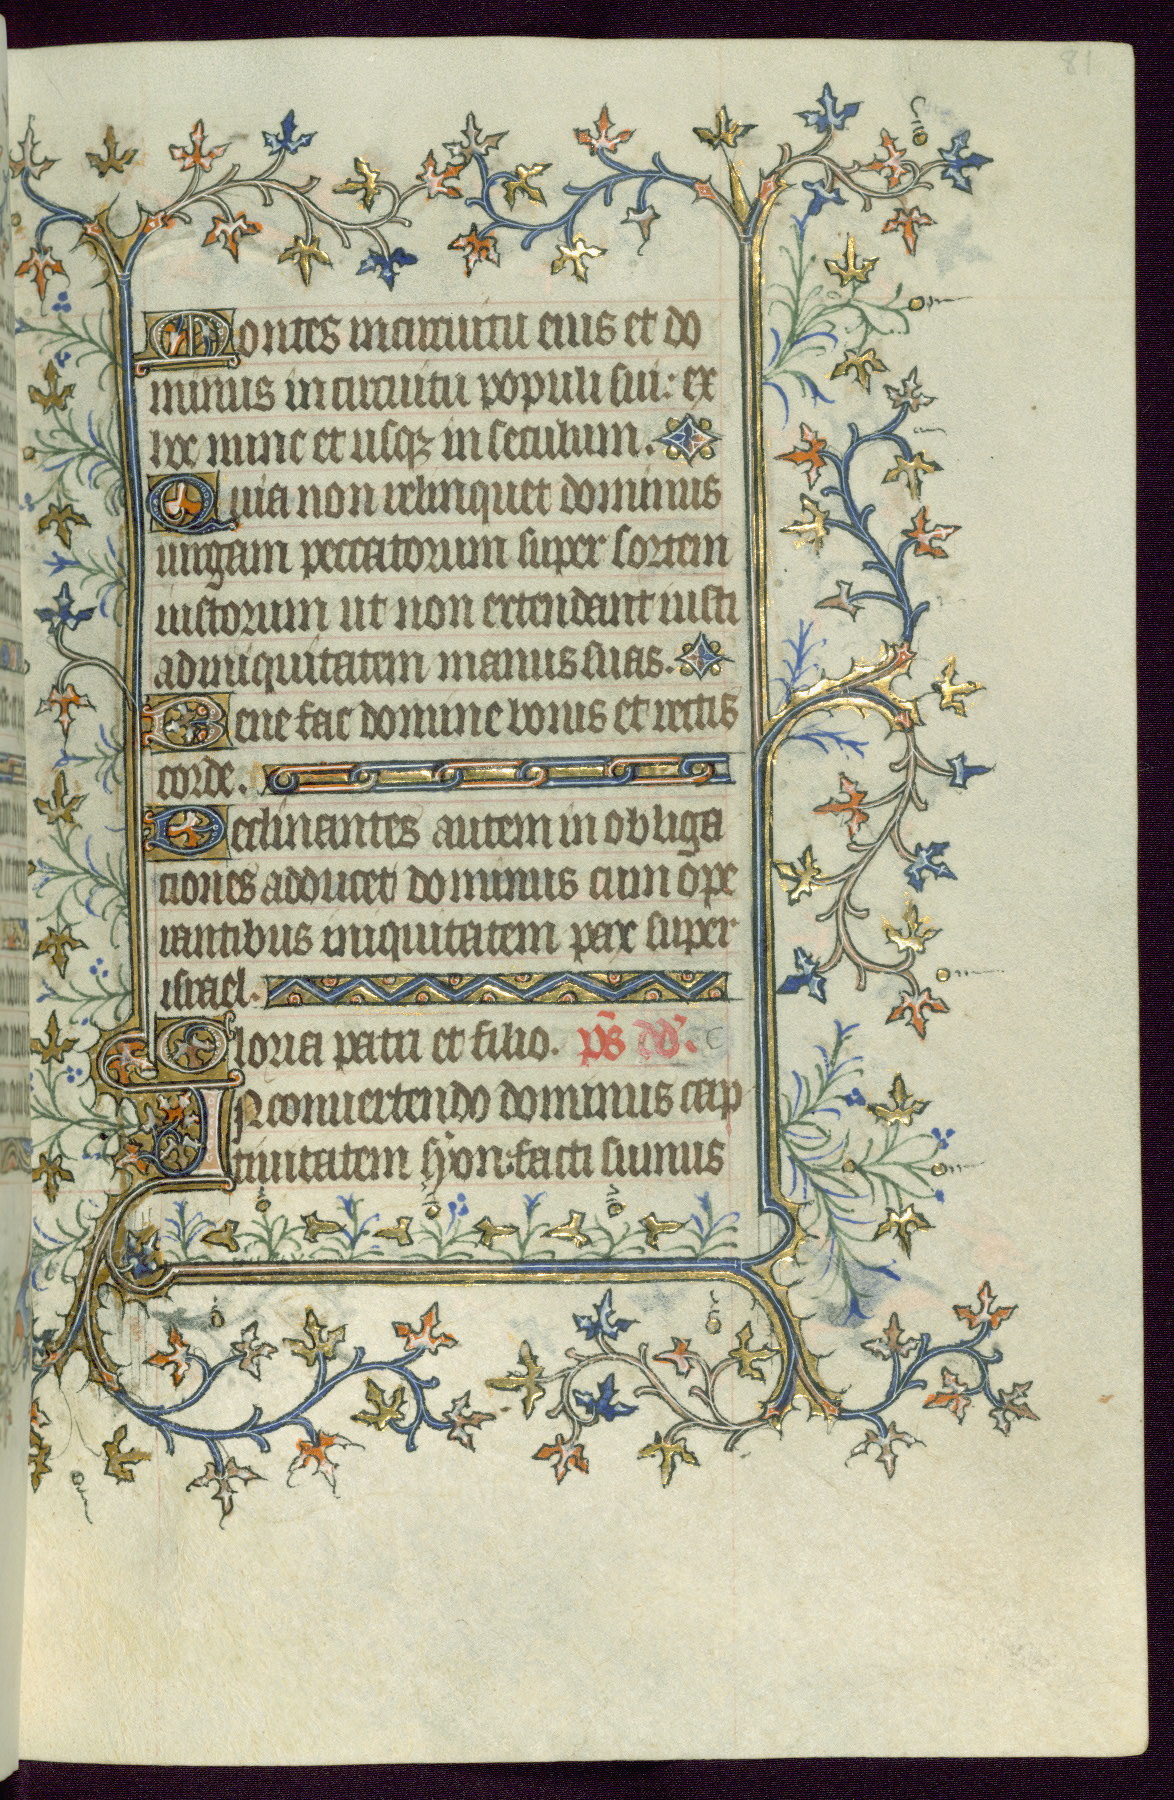 81
Montes in circuitu eius et do
minus in circuitu populi sui: ex
hoc nunc et usqz in seculum.
Quia non relinquet dominus
uirgam peccatorum super sortem
iustorum ut non extendant iusti
ad iniquitatem manus suas.
Bene fac domine bonis et rectis
corde.
Declinantes autem in obliga
tiones adducet dominus cum ope
rantibus iniquitatem pax super
israel.
Gloria patri et filio. ps dd.
In conuertendo dominus cap
tiuitatem syon: facti sumus